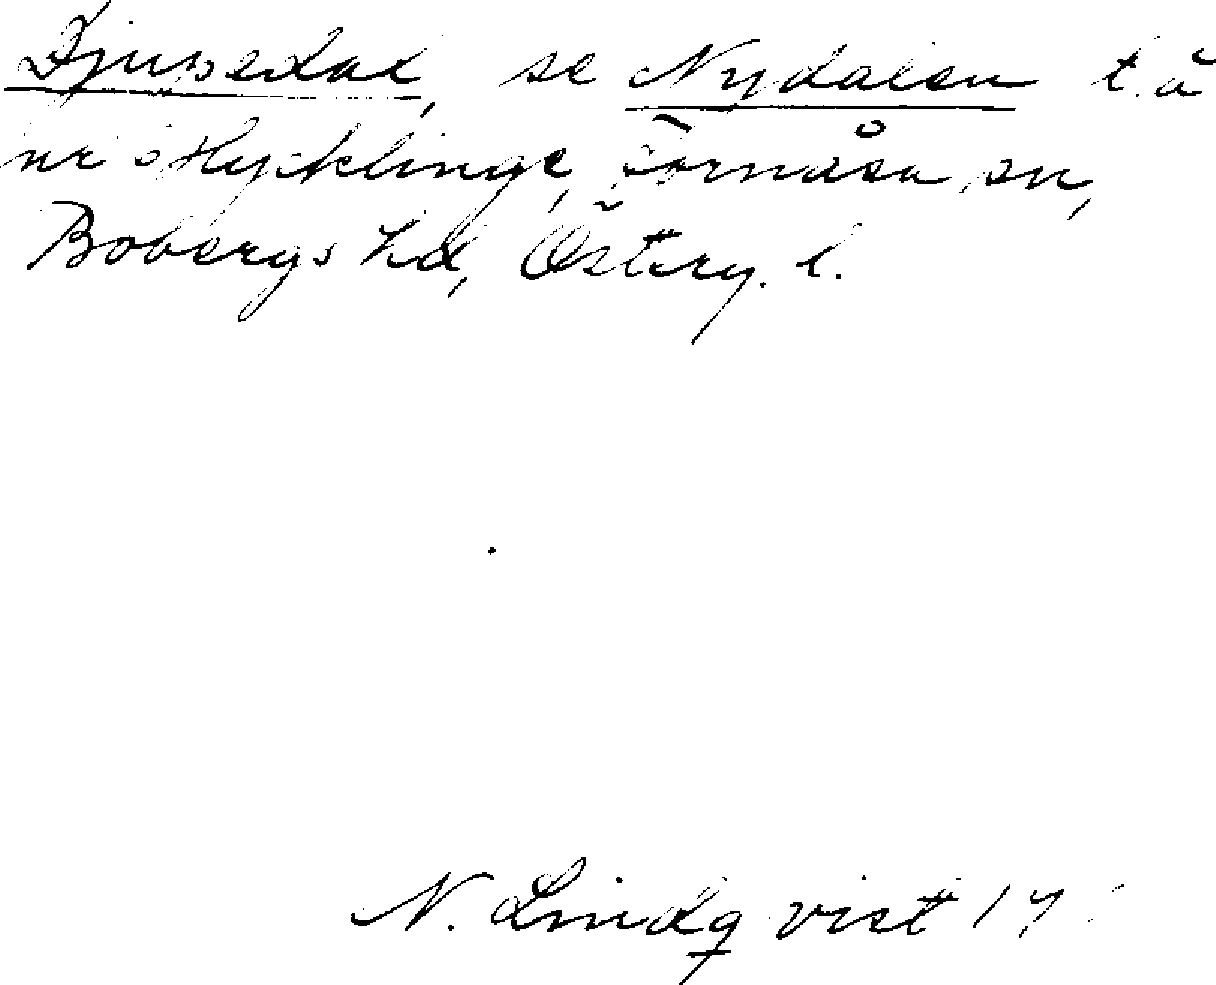 Djupedal, se Nydalen t. å
nr Hycklinge, Fornåsa sn,
Bobergs hd, Österg. l.
N. Lindqvist 17